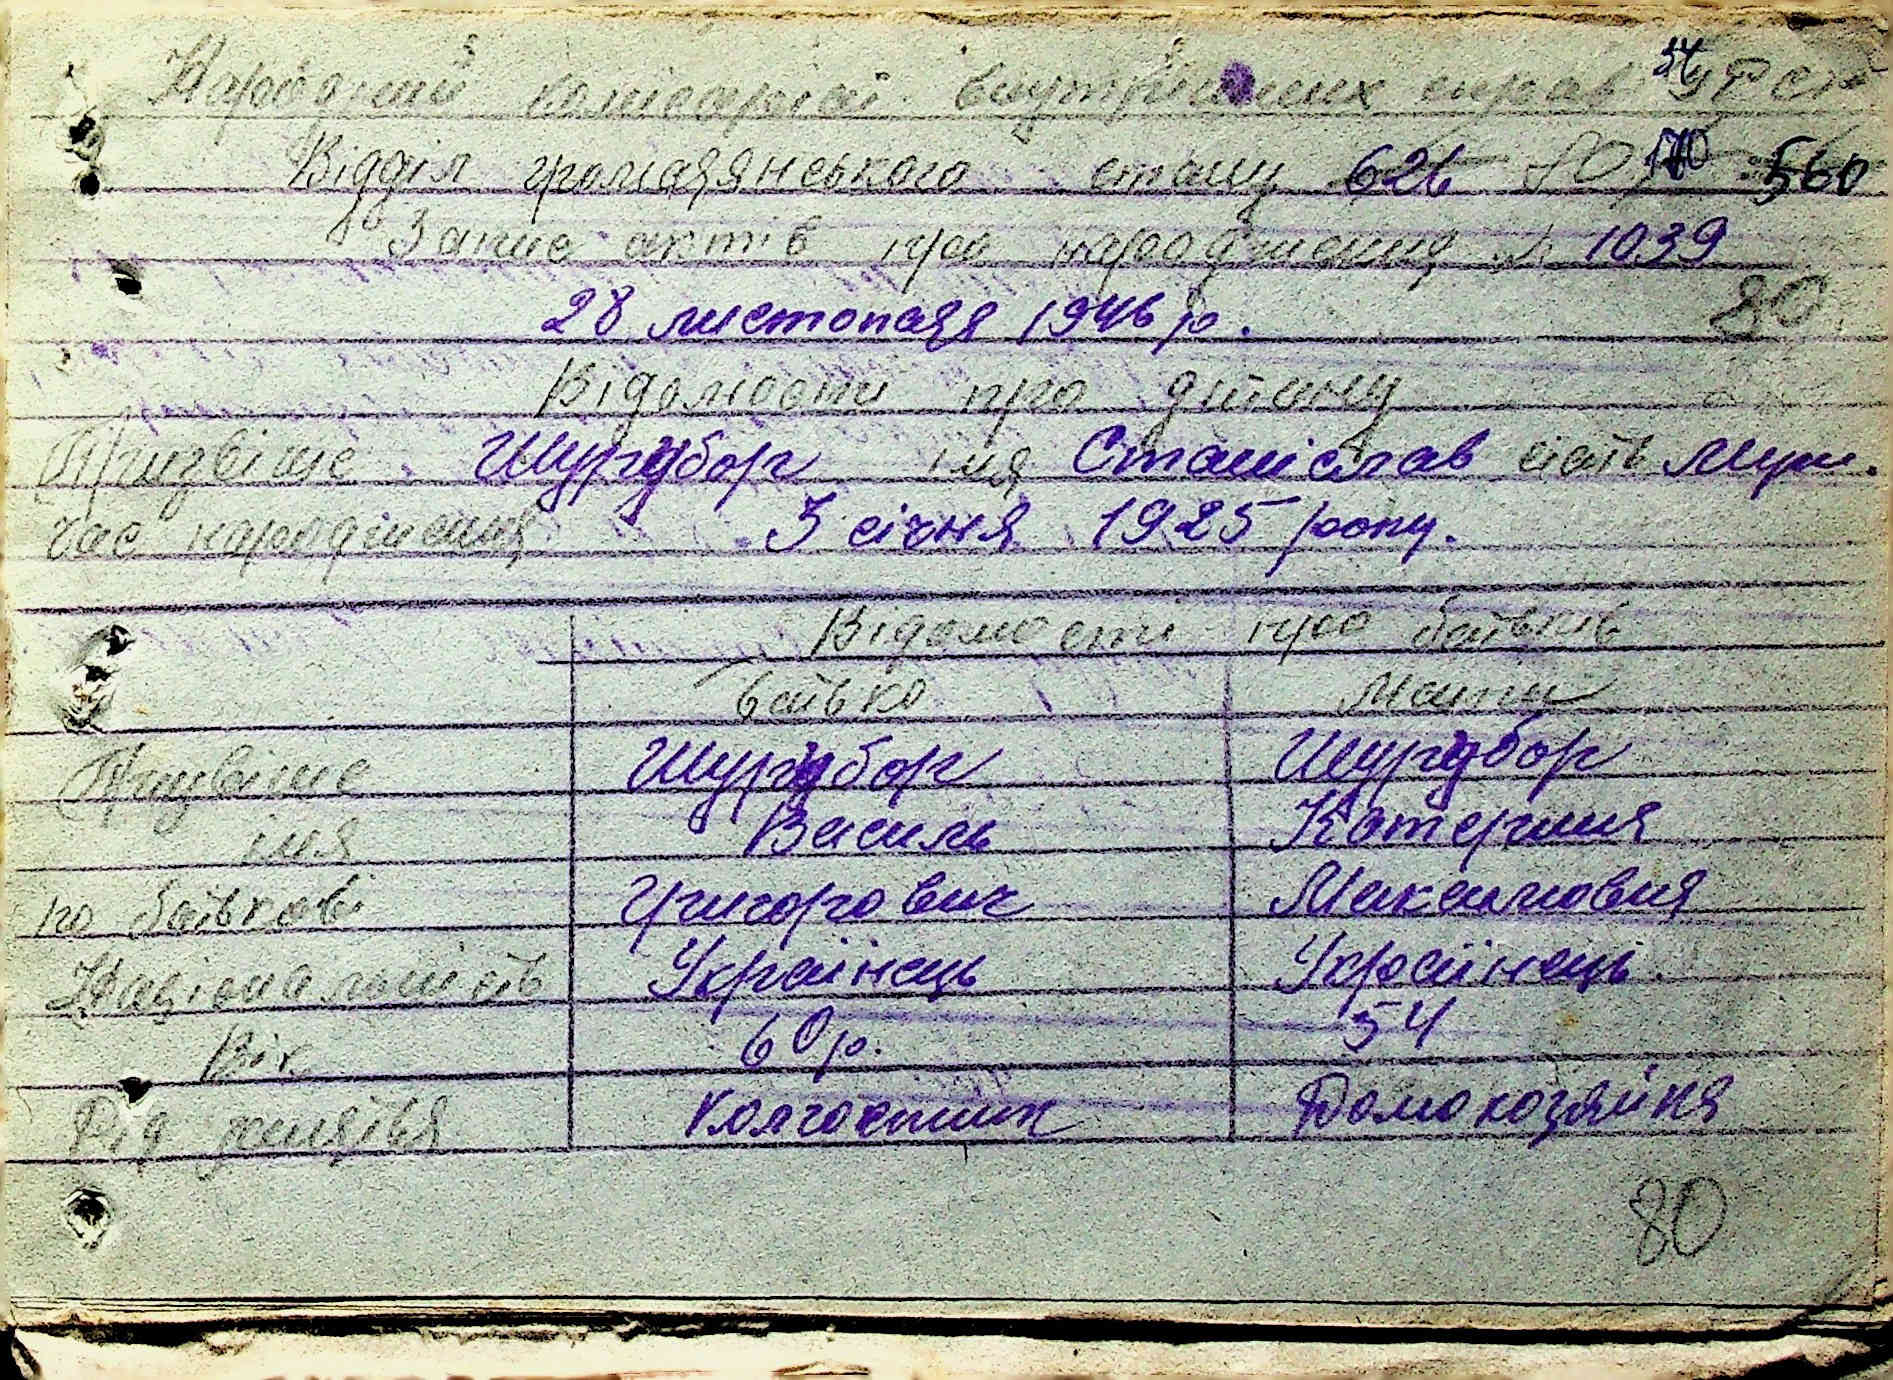 54
Народний комісаріат внутрішніх справ УРСР
Відділ громадянського стану 626 80 170 560
Запис актів про народження № 1039
28 листопада 1946 р. 80
Відомости про дитину
Призвіще Шургубор імя Станіслав стать Муж.
Час народження 3 січня 1925 року.
Відомості про батьків
батько Мати
Призвіще Шургубор Шургубор
імя Василь Катерина
по батькові Григорович Максимовна
Національність Українець Українець
Вік 60 р. 54
Рід заняття Колгоспник Домохозяйка
80